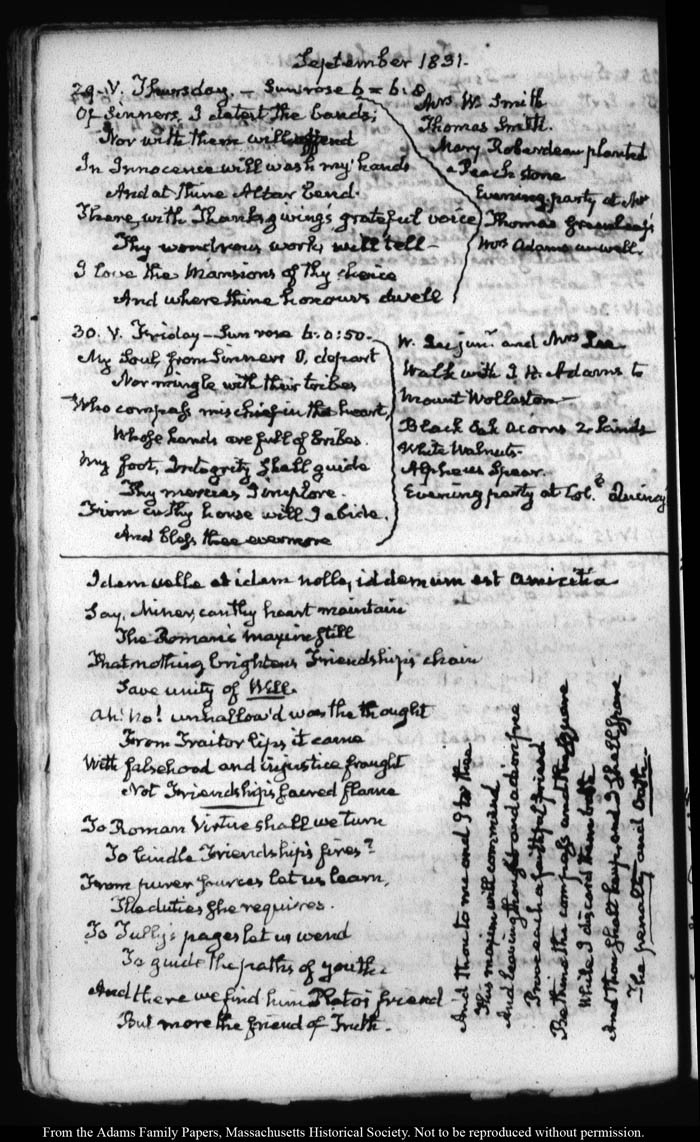 September 1831.
29. V. Thursday. — Sun rose 6 = 6:8
Of Sinners, I detest the bands;
Nor with them will offend
In Innocence will wash my hands
And at thine Altar bend.
There, with Thanksgivings grateful voice
Thy wondrous works will tell —
I love the Mansions of thy choice
And where thine honours dwell
Mrs W. Smith
Thomas Smith.
Mary Roberdeau planted
a Peach stone
Evening party at Mr
Thomas Greenleaf's
Mrs Adams unwell.
30. V. Friday — Sun rose 6:0:50.
My Soul, from Sinners O, depart
Nor mingle with their tribes
Who compass mischief in the heart,
Whose hands are full of bribes.
My foot, Integrity shall guide
Thy mercies I implore.
Firm in thy house will I abide,
And bless thee evermore
W. Lee junr. and Mrs Lee
Walk with I. H. Adams to
Mount Wollaston —
Black Oak Acorns 2 kinds
White Walnuts.
Alpheus Spear.
Evening party at Col. Quincy's
Idem velle et idem nolle, id demum est amicitia
Say, Miner, can thy heart maintain
The Roman's maxim still
That nothing brightens Friendship's chain
Save unity of Will.
Ah! No! unhallow'd was the thought
From Traitor lips it came
With falsehood and injustice fraught
Not Friendship's sacred flame
To Roman Virtue shall we turn
To kindle Friendship's fires?
From purer sources let us learn,
The duties she requires.
To Tully's pages let us wend
To guide the paths of youth
And there we find him Plato's friend
But more the friend of Truth.
And thou to me and I to thee
This maxim will commend
And leaving thought and action free
Prove each a faithful friend
Be thine the compass and the square
While I discard them both
And thou shalt keep, and I shall spare
The penalty and Oath.
From the Adams Family Papers, Massachusetts Historical Society. Not to be reproduced without permission.